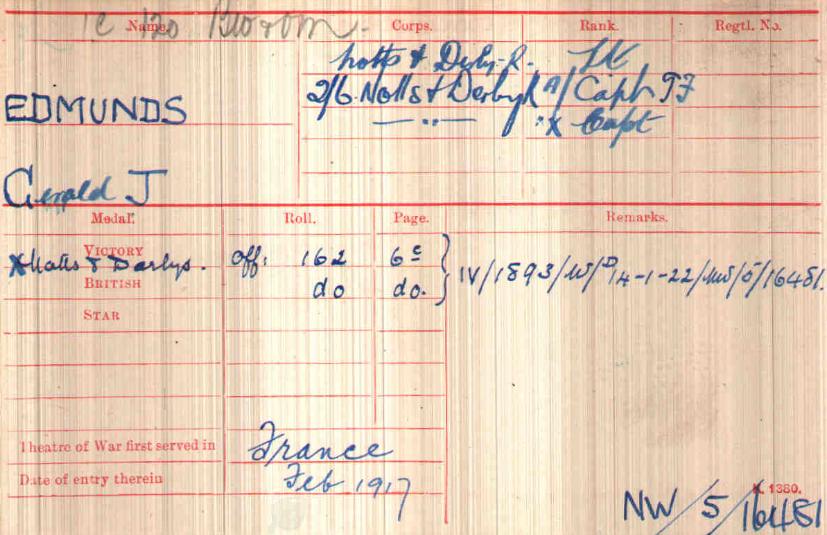 Name. Corps. Rank. Regtl. No.
Notts & Derby. R. Lt
2/6 Notts & Derby R A/Capt TF
— " — " X Capt
EDMUNDS
Gerald J
Medal. Roll. Page. Remarks.
VICTORY Off: 162 6c
X Notts & Derbys.
IV/1893/
BRITISH do do.
STAR
Theatre of War first served in France
Date of entry therein Feb 1917
K. 1380.
NW/5/16481